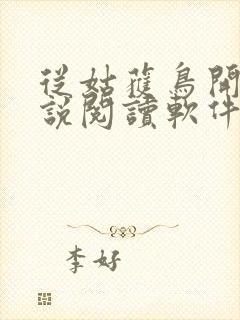 從姑蘿鳥開
說閱讀軟件
李好